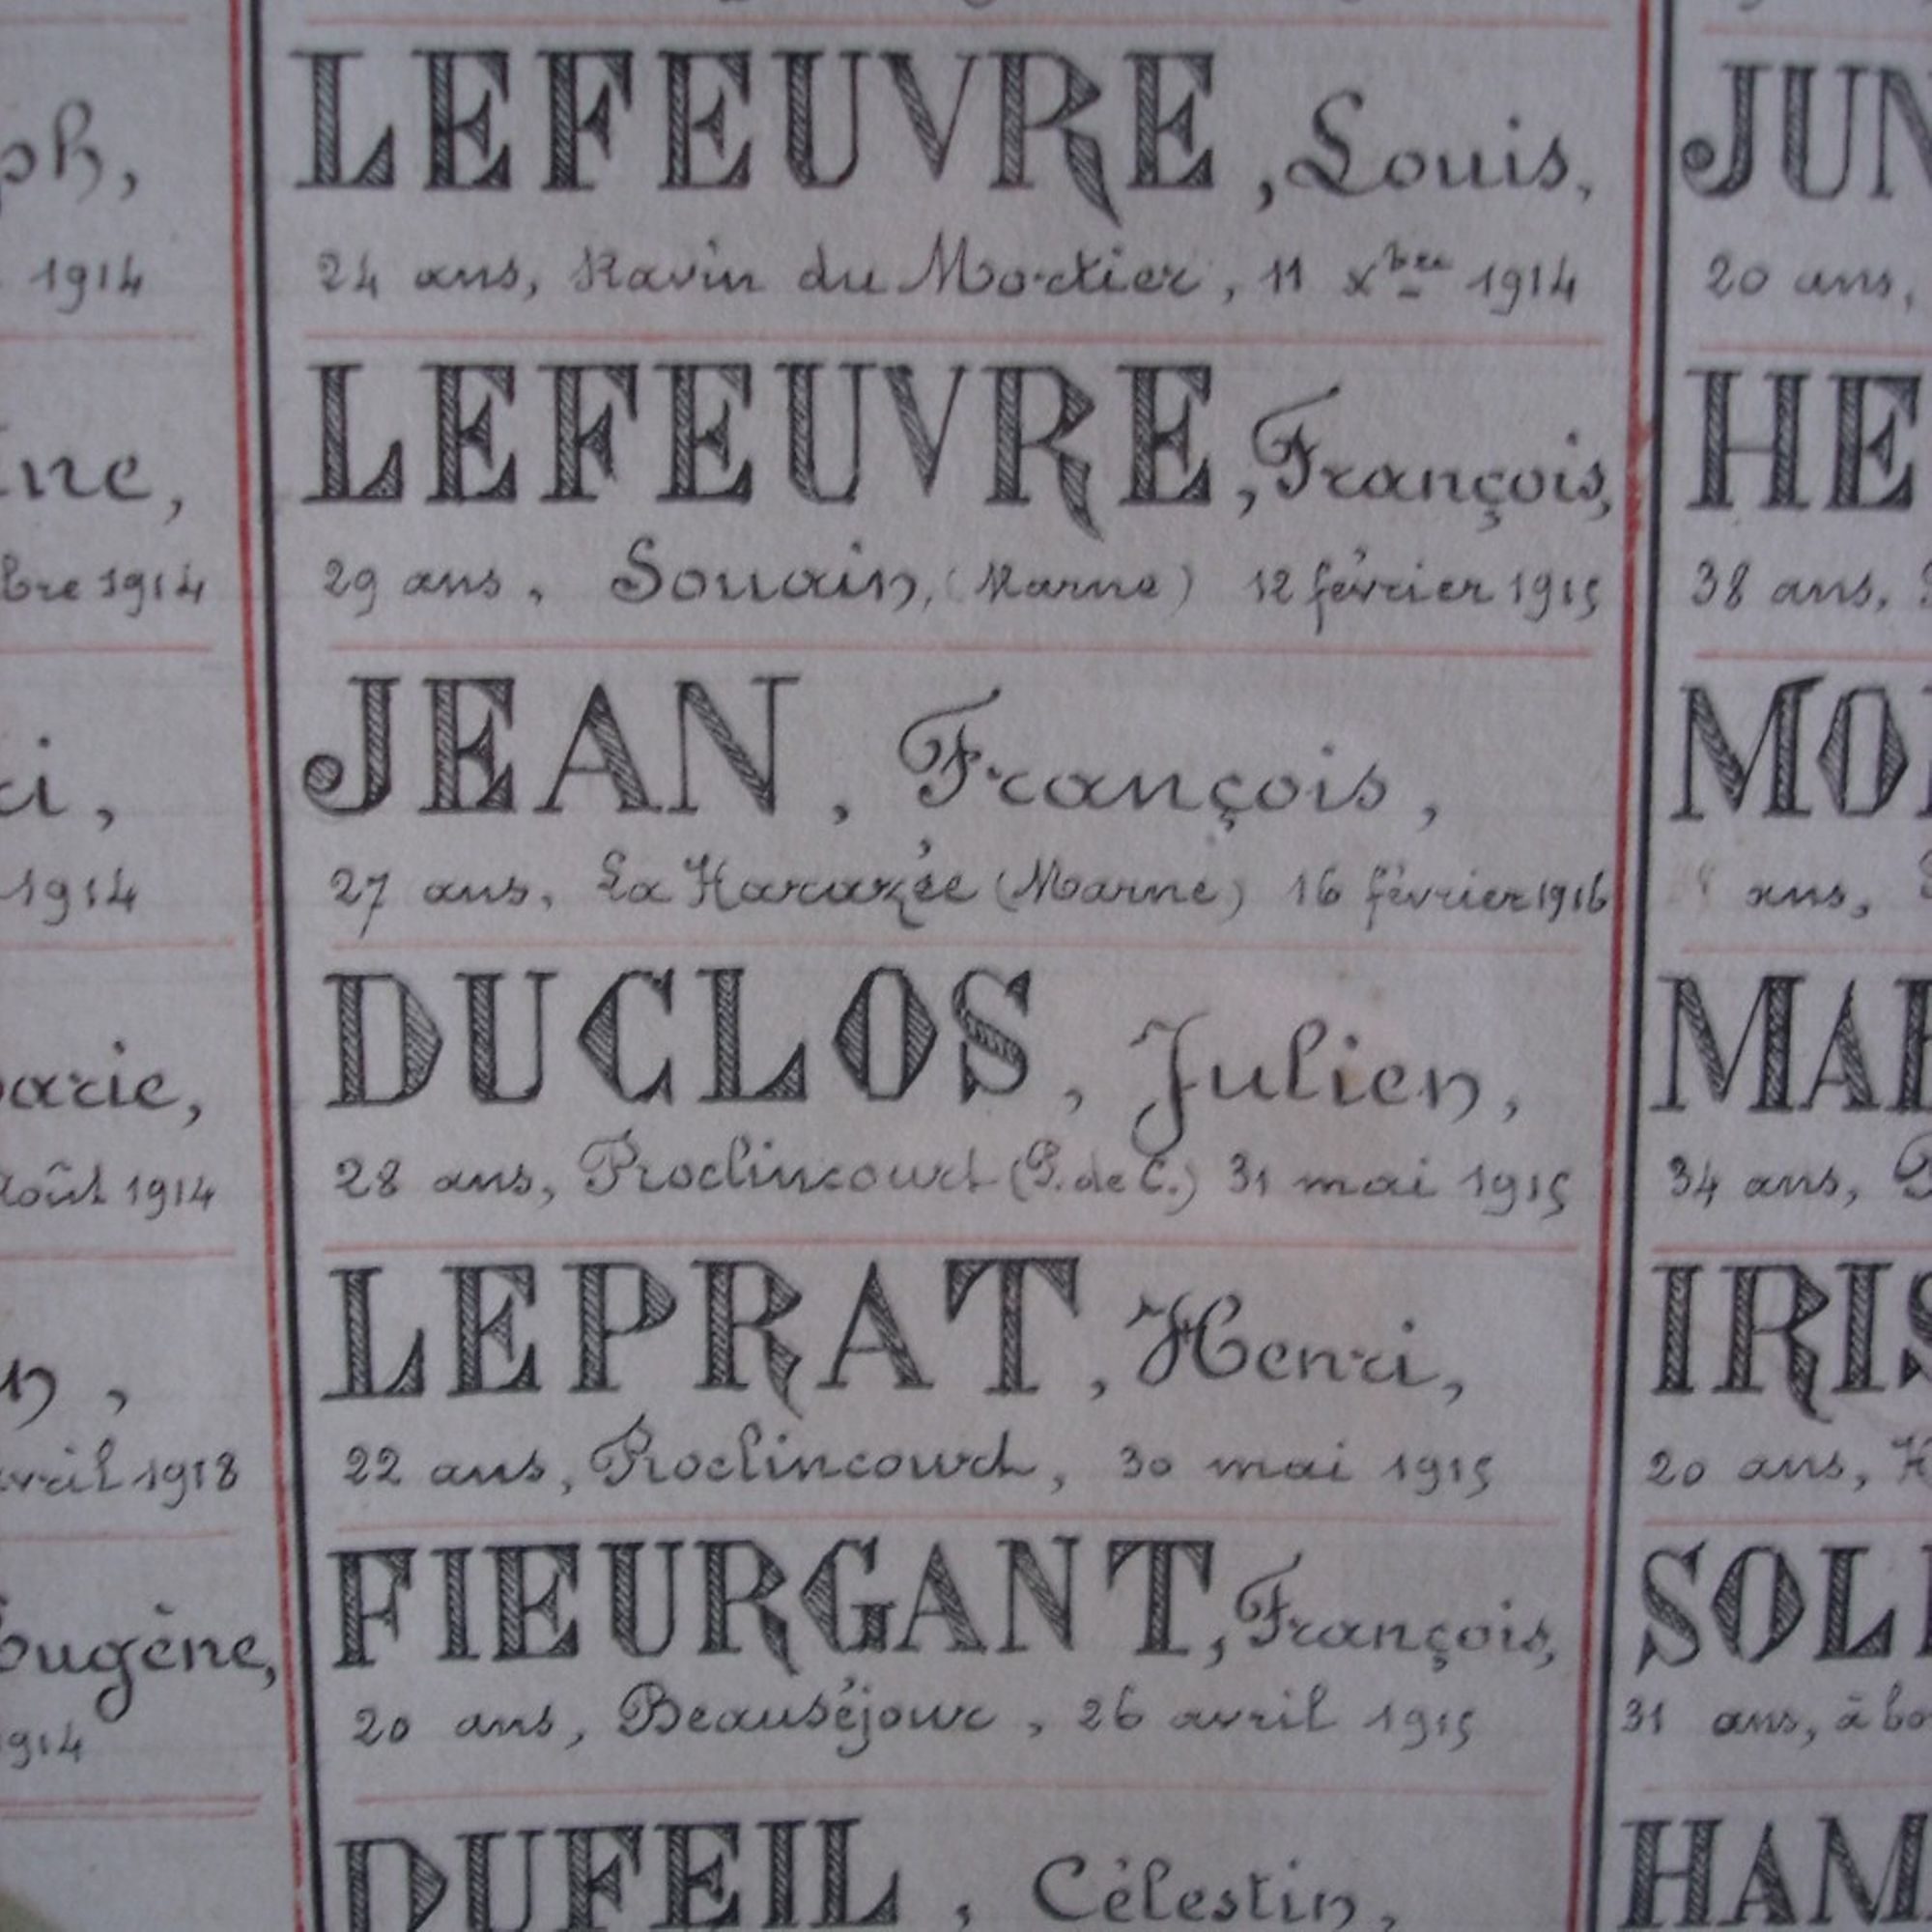 ph,
1914
ine,
bre 1914
ci,
1914
arie,
Août 1914
n,
avril 1918
Eugène,
1914
LEFEUVRE, Louis,
24 ans, Ravin du Mortier, 11 Xbre 1914
LEFEUVRE, François,
29 ans, Souain, (Marne) 12 février 1915
JEAN, François,
27 ans, La Harazée (Marne) 16 février 1916
DUCLOS, Julien,
28 ans, Roclincourt (P. de C.) 31 mai 1915
LEPRAT, Henri,
22 ans, Roclincourt, 30 mai 1915
FIEURGANT, François,
20 ans, Beauséjour, 26 avril 1915
DUFEIL, Célestin,
JUN
20 ans,
HE
38 ans,
MO
ans,
MA
34 ans,
IRIS
20 ans,
SOL
31 ans, à bo
HAM